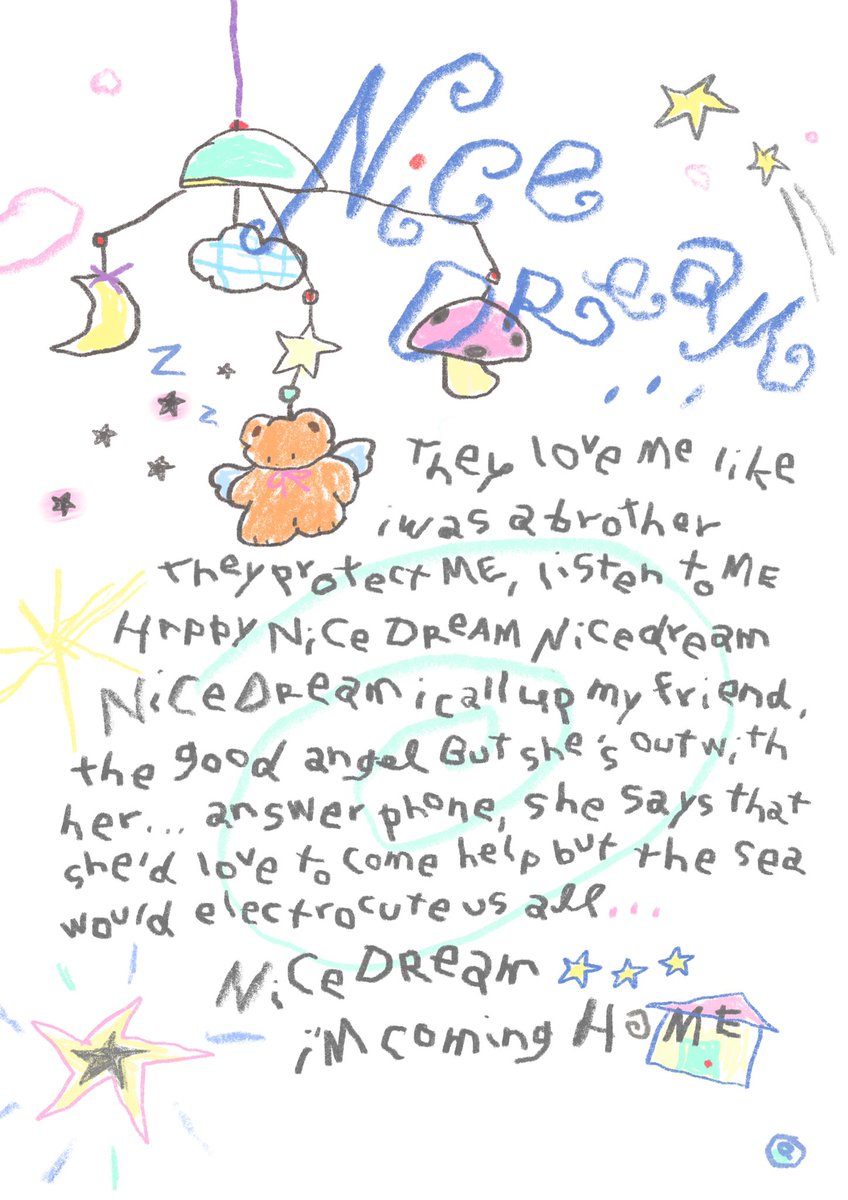 Nice
DReaM...
z
z
They love Me like
i was a brother
They protect ME, listen to ME
HAppy NiCe DReAM Nicedream
NiCe DReam i call up my friend,
the good angel But she's out with
her... answer phone, she says that
she'd love to come help but the sea
would electrocute us all...
NiCe DReam
i'M coming HoME